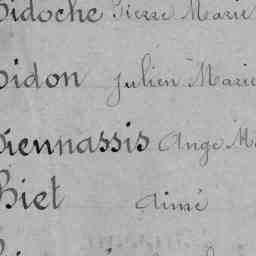 Bidoche Pierre Marie
Bidon Julien Marie
Biennassis Ange
Biet Aimé